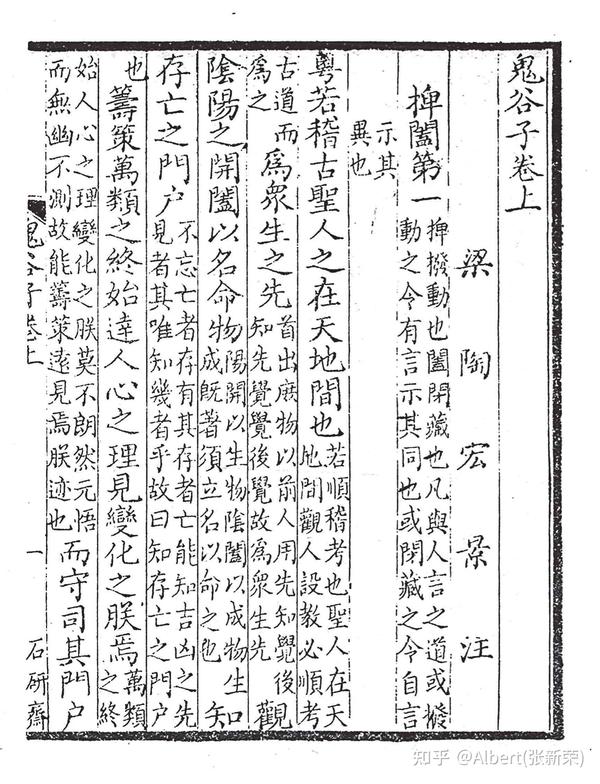 鬼谷子卷上
梁陶宏景注
捭闔第一捭撥動也闔閉藏也凡與人言之道或撥
動之令有言示其同也或閉藏之令自言
示其
異也
粵若稽古聖人之在天地間也若順稽考也聖人在天
地間觀人設教必順考
古道而
爲之
爲衆生之先首出庶物以前人用先知覺後
知先覺覺後覺故爲衆生先
觀
陰陽之開闔以名命物陽開以生物陰闔以成物生
成旣著須立名以命之也
知
存亡之門户不忘亡者存有其存者亡能知吉凶之先
見者其唯知幾者乎故曰知存亡之門户
也
籌策萬類之終始達人心之理見變化之朕焉萬類
之終
始人心之理變化之朕莫不朗然元悟
而無幽不測故能籌策遠見焉朕迹也
而守司其門户
鬼谷子卷上
一
石研齋
知乎 @Albert(张新荣)